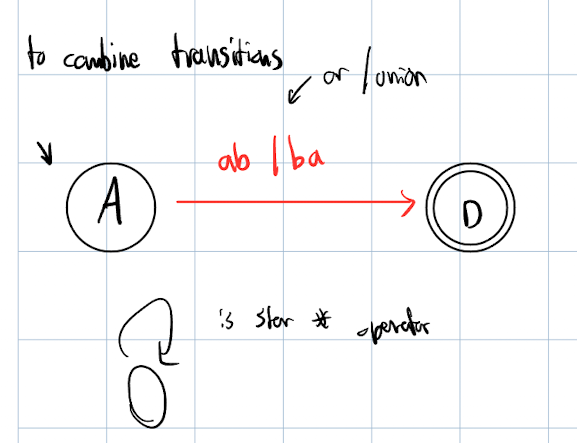 to combine transitions
or / union
ab | ba
A
D
is star * operator